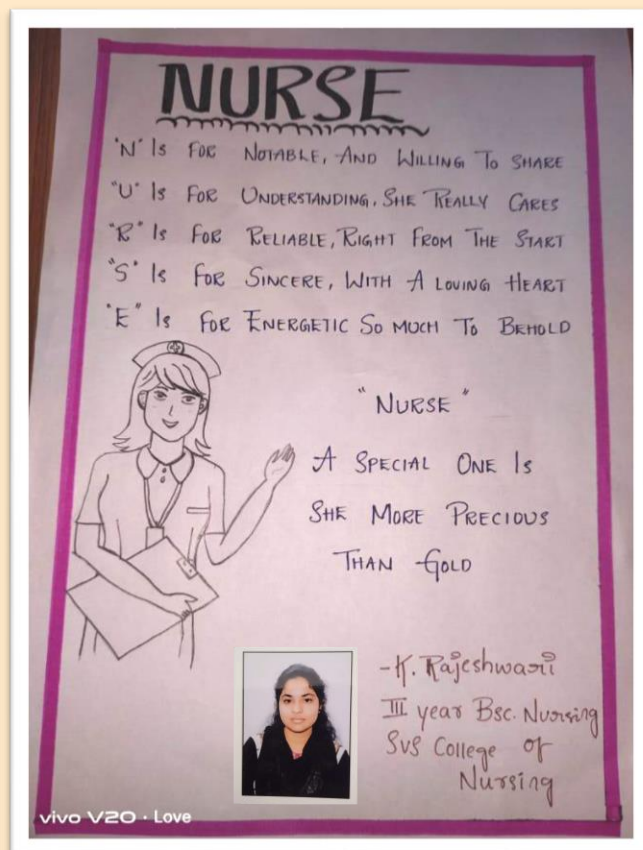 NURSE
"N" Is FOR NOTABLE, AND WILLING TO SHARE
"U" Is FOR UNDERSTANDING, SHE REALLY CARES
"R" Is FOR RELIABLE, RIGHT FROM THE START
"S" Is FOR SINCERE, WITH A LOVING HEART
"E" Is FOR ENERGETIC SO MUCH TO BEHOLD
"NURSE"
A SPECIAL ONE IS
SHE MORE PRECIOUS
THAN GOLD
-K. Rajeshwari
III year Bsc. Nursing
SVS College of
Nursing
vivo V20 · Love